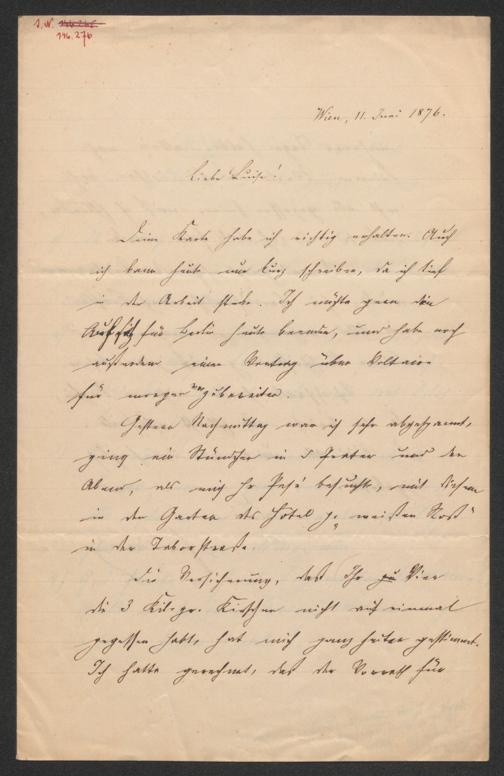 I. N.
146.276
Wien, 11. Juni 1876.
Liebe Luise!
Deine Karte habe ich richtig erhalten. Auch
ich kann heute nur kurz schreiben, da ich tief
in der Arbeit stecke. Ich möchte gern den
Aufsatz für Berlin heute beenden, und habe noch
außerdem einen Vortrag über Voltaire
für morgen vorzubereiten
Gestern Nachmittag war ich sehr abgespannt,
ging ein Stündchen in d Prater und den
Abend, als mich Hr besuchte, mit diesem
in den Garten des Hôtel z. „weißen Roß“
in der Taborstraße.
Die Versicherung, daß Ihr zu Vier
die 3 Kilogr. Kirschen nicht auf einmal
gegessen habt, hat mich ganz heiter gestimmt.
Ich hatte gerechnet, daß der Vorrath für